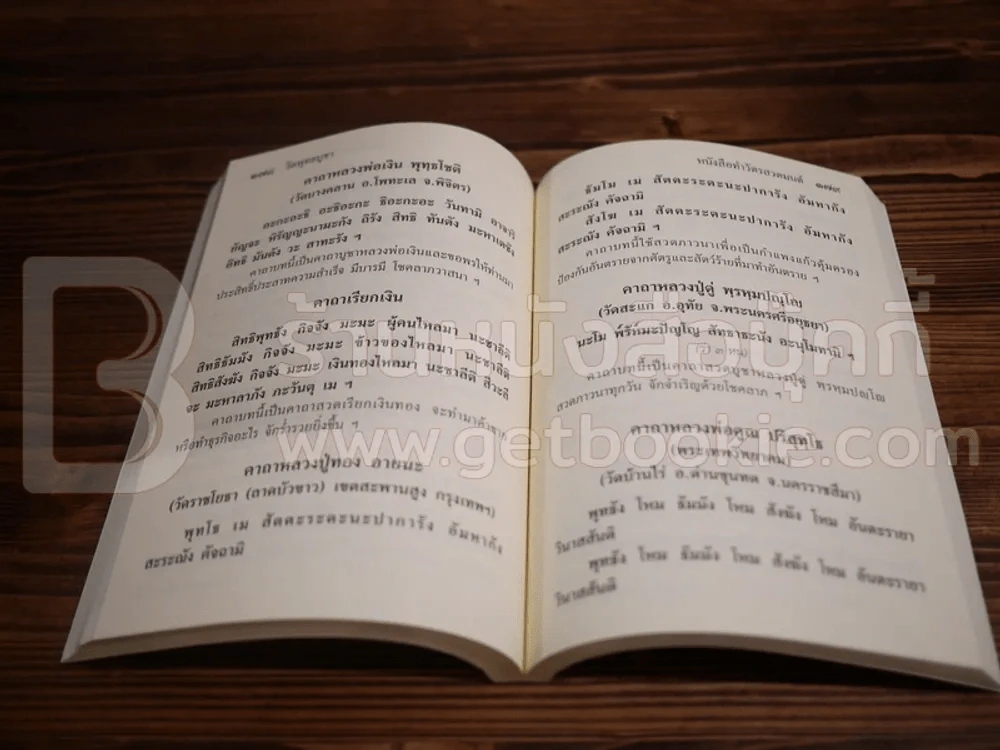 ๒๗๘ วัดพุทธบูชา
คาถาหลวงพ่อเงิน พุทฺธโชติ
(วัดบางคลาน อ.โพทะเล จ.พิจิตร)
อะกะอะธิ อะธิอะกะ ธิอะกะอะ วันทามิ อาจะริ
ยัญจะ หิรัญญะนามะกัง ถิรัง สิทธิ ทันตัง มะหาเตชัง
อิทธิ มันตัง วะ สาทะรัง ฯ
คาถาบทนี้เป็นคาถาบูชาหลวงพ่อเงินและขอพรให้ท่านมา
ประสิทธิ์ประสาทความสำเร็จ มีบารมี โชคลาภวาสนา ฯ
คาถาเรียกเงิน
สิทธิพุทธัง กิจจัง มะมะ ผู้คนไหลมา นะชาลีติ
สิทธิธัมมัง กิจจัง มะมะ ข้าวของไหลมา นะชาลีติ
สิทธิสังฆัง กิจจัง มะมะ เงินทองไหลมา นะชาลีติ สีวะลี
จะ มะหาลาภัง ภะวันตุ เม ฯ
คาถาบทนี้เป็นคาถาสวดเรียกเงินทอง จะทำมาค้าขาย
หรือทำธุรกิจอะไร จักร่ำรวยยิ่งขึ้น ฯ
คาถาหลวงปู่ทอง อายนะ
(วัดราชโยธา (ลาดบัวขาว) เขตสะพานสูง กรุงเทพฯ)
พุทโธ เม สัตตะระตะนะปาการัง อัมหากัง
สะระณัง คัจฉามิ
หนังสือทำวัตรสวดมนต์ ๒๗๙
ธัมโม เม สัตตะระตะนะปาการัง อัมหากัง
สะระณัง คัจฉามิ
สังโฆ เม สัตตะระตะนะปาการัง อัมหากัง
สะระณัง คัจฉามิ ฯ
คาถาบทนี้ใช้สวดภาวนาเพื่อเป็นกำแพงแก้วคุ้มครอง
ป้องกันอันตรายจากศัตรูและสัตว์ร้ายที่มาทำอันตราย ฯ
คาถาหลวงปู่ดู่ พฺรหฺมปญฺโญ
(วัดสะแก อ.อุทัย จ.พระนครศรีอยุธยา)
นะโม พรัหมะปัญโญ สัทธาธะนัง อะนุโมทามิ ฯ
(๓ หน)
คาถาบทนี้เป็นคาถาสวดบูชาหลวงปู่ดู่ พฺรหฺมปญฺโญ
สวดภาวนาทุกวัน จักจำเริญด้วยโชคลาภ ฯ
คาถาหลวงพ่อคูณ ปริสุทฺโธ
(พระเทพวิทยาคม)
(วัดบ้านไร่ อ.ด่านขุนทด จ.นครราชสีมา)
พุทธัง โหม ธัมมัง โหม สังฆัง โหม อันตะรายา
วินาสสันติ
พุทธัง โหม ธัมมัง โหม สังฆัง โหม อันตะรายา
วินาสสันติ
ร้านหนังสือบุ๊คกี้
www.getbookie.com